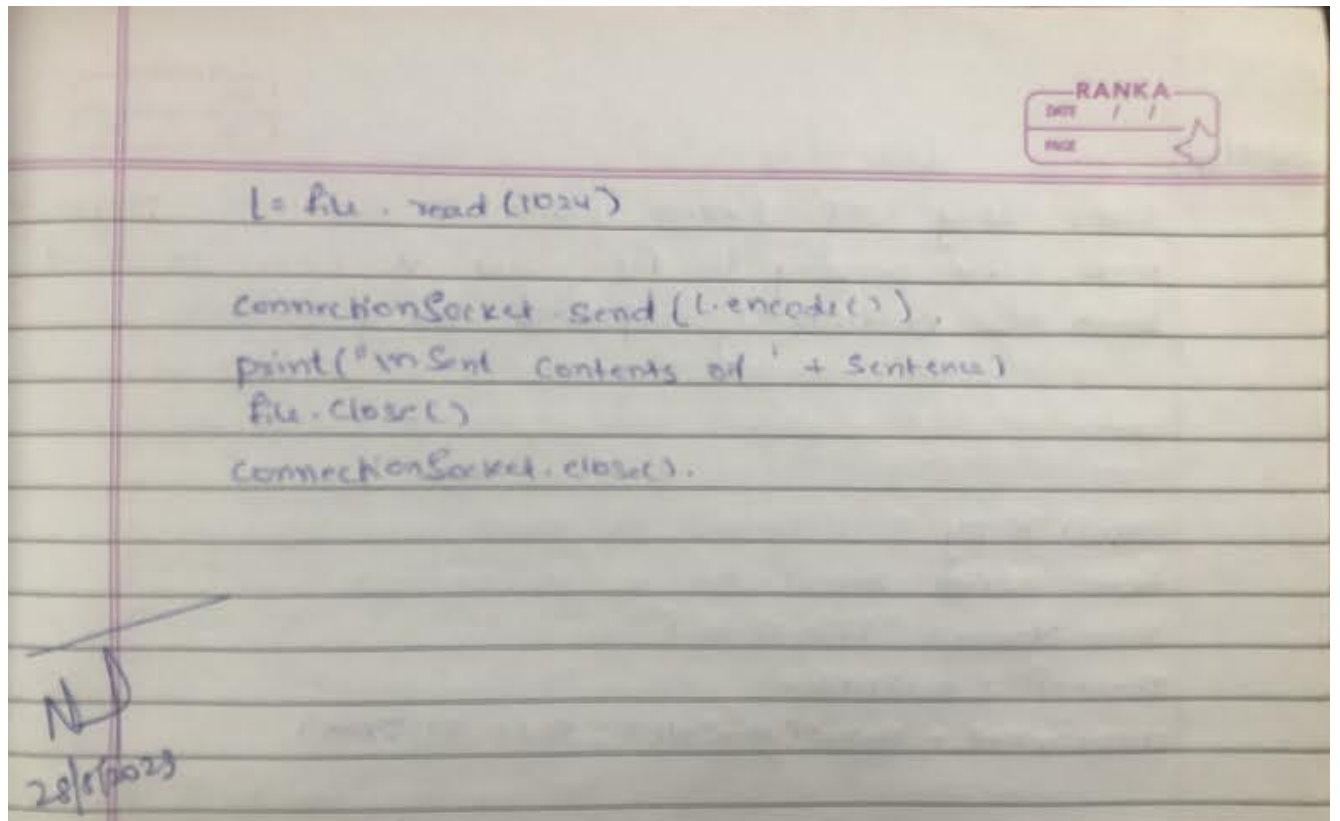 RANKA
DATE / /
PAGE
l = file . read (1024)
connectionSocket . send (l.encode()).
print("\n Sent contents of ' + Sentence)
file.close()
connectionSocket.close().
28/8/2023